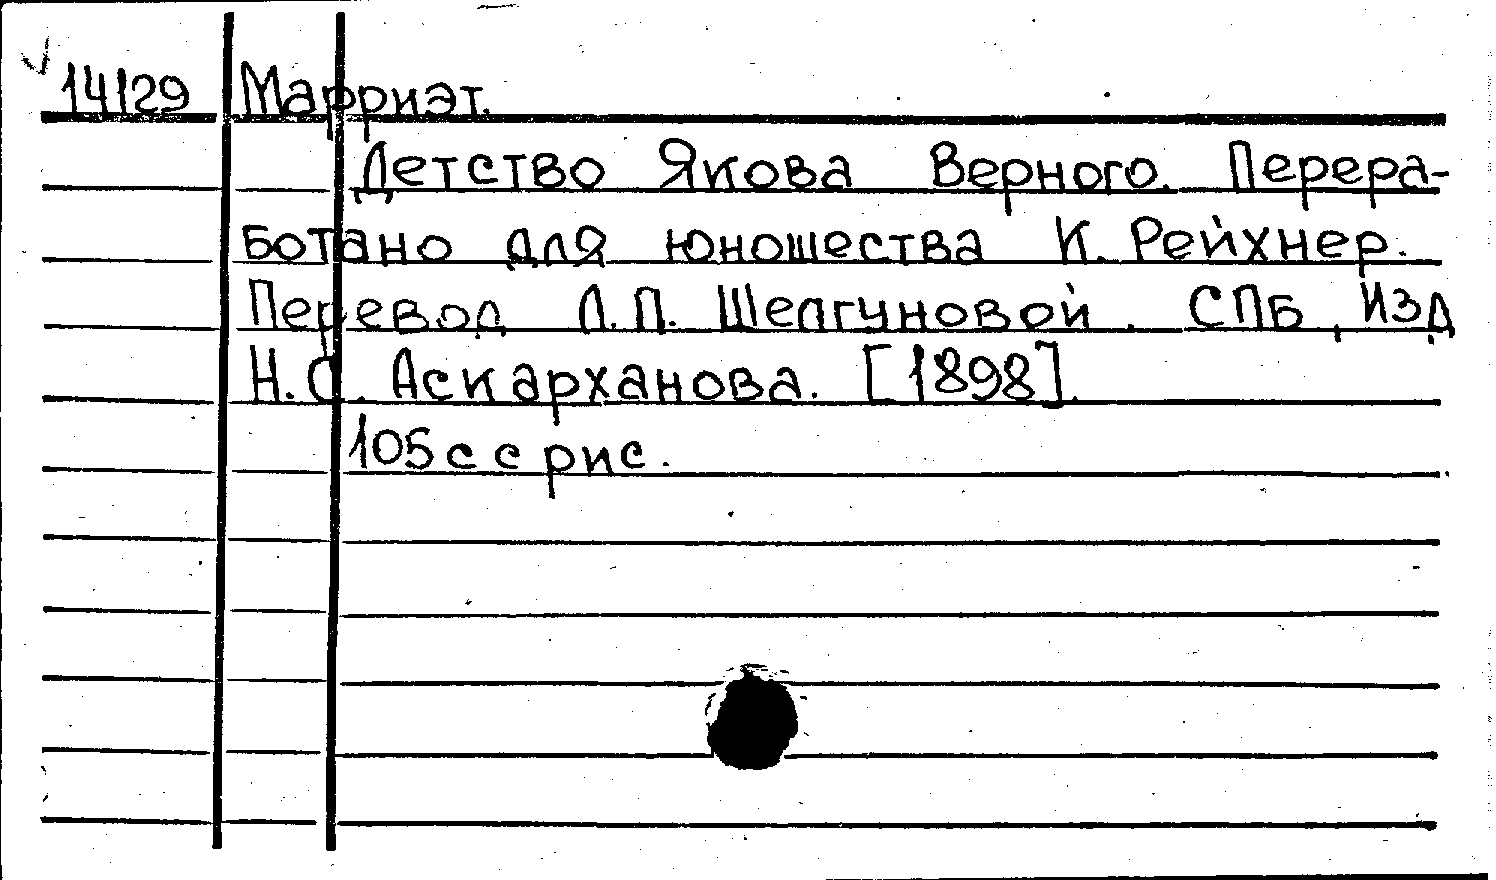 14129 Марриэт.
Детство Якова Верного. Перера-
ботано для юношества К. Рейхнер.
Перевод Л.П. Шелгуновой. СПБ, Изд
Н.С. Аскарханова. [1898].
105 с с рис.